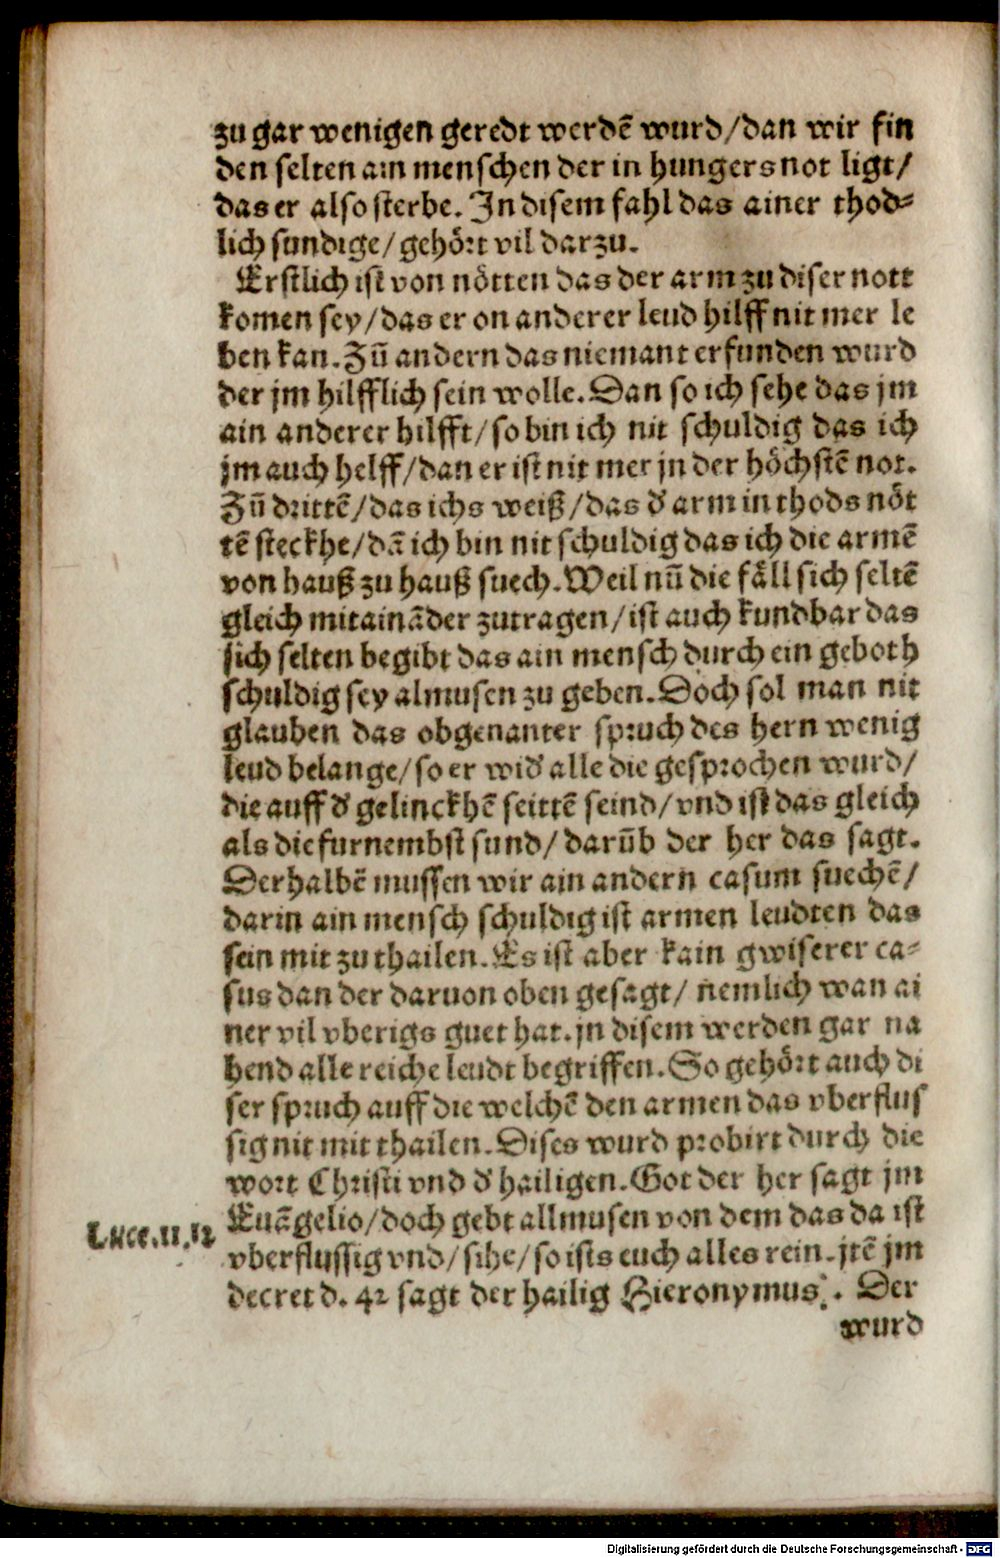 zu gar wenigen geredt werdē wurd/dan wir fin
den selten ain menschen der in hungers not ligt/
das er also sterbe. In disem fahl das ainer thod⸗
lich sundige/gehört vil darzu.
Erstlich ist von nötten das der arm zu diser nott
komen sey/das er on anderer leud hilff nit mer le
ben kan. Zū andern das niemant erfunden wurd
der jm hilfflich sein wolle. Dan so ich sehe das jm
ain anderer hilfft/so bin ich nit schuldig das ich
jm auch helff/dan er ist nit mer jn der höchstē not.
Zū drittē/das ichs weiß/das d' arm in thods nöt
tē steckhe/dā ich bin nit schuldig das ich die armē
von hauß zu hauß suech. Weil nū die fäll sich seltē
gleich mitaināder zutragen/ist auch kundbar das
sich selten begibt das ain mensch durch ein geboth
schuldig sey almusen zu geben. Doch sol man nit
glauben das obgenanter spruch des hern wenig
leud belange/so er wid' alle die gesprochen wurd/
die auff d' gelinckhē seittē seind/vnd ist das gleich
als die furnembst sund/darūb der her das sagt.
Derhalbē mussen wir ain andern casum suechē/
darin ain mensch schuldig ist armen leudten das
sein mit zu thailen. Es ist aber kain gwiserer ca⸗
sus dan der daruon oben gesagt/ nemlich wan ai
ner vil vberigs guet hat. jn disem werden gar na
hend alle reiche leudt begriffen. So gehört auch di
ser spruch auff die welchē den armen das vberflus
sig nit mit thailen. Dises wurd probirt durch die
wort Christi vnd d' hailigen. Got der her sagt jm
Luce.11.12 Euāgelio/doch gebt allmusen von dem das da ist
vberflussig vnd/sihe/so ists euch alles rein. jtē jm
decret d. 42 sagt der hailig Hieronymus. Der
wurd
Digitalisierung gefördert durch die Deutsche Forschungsgemeinschaft - DFG